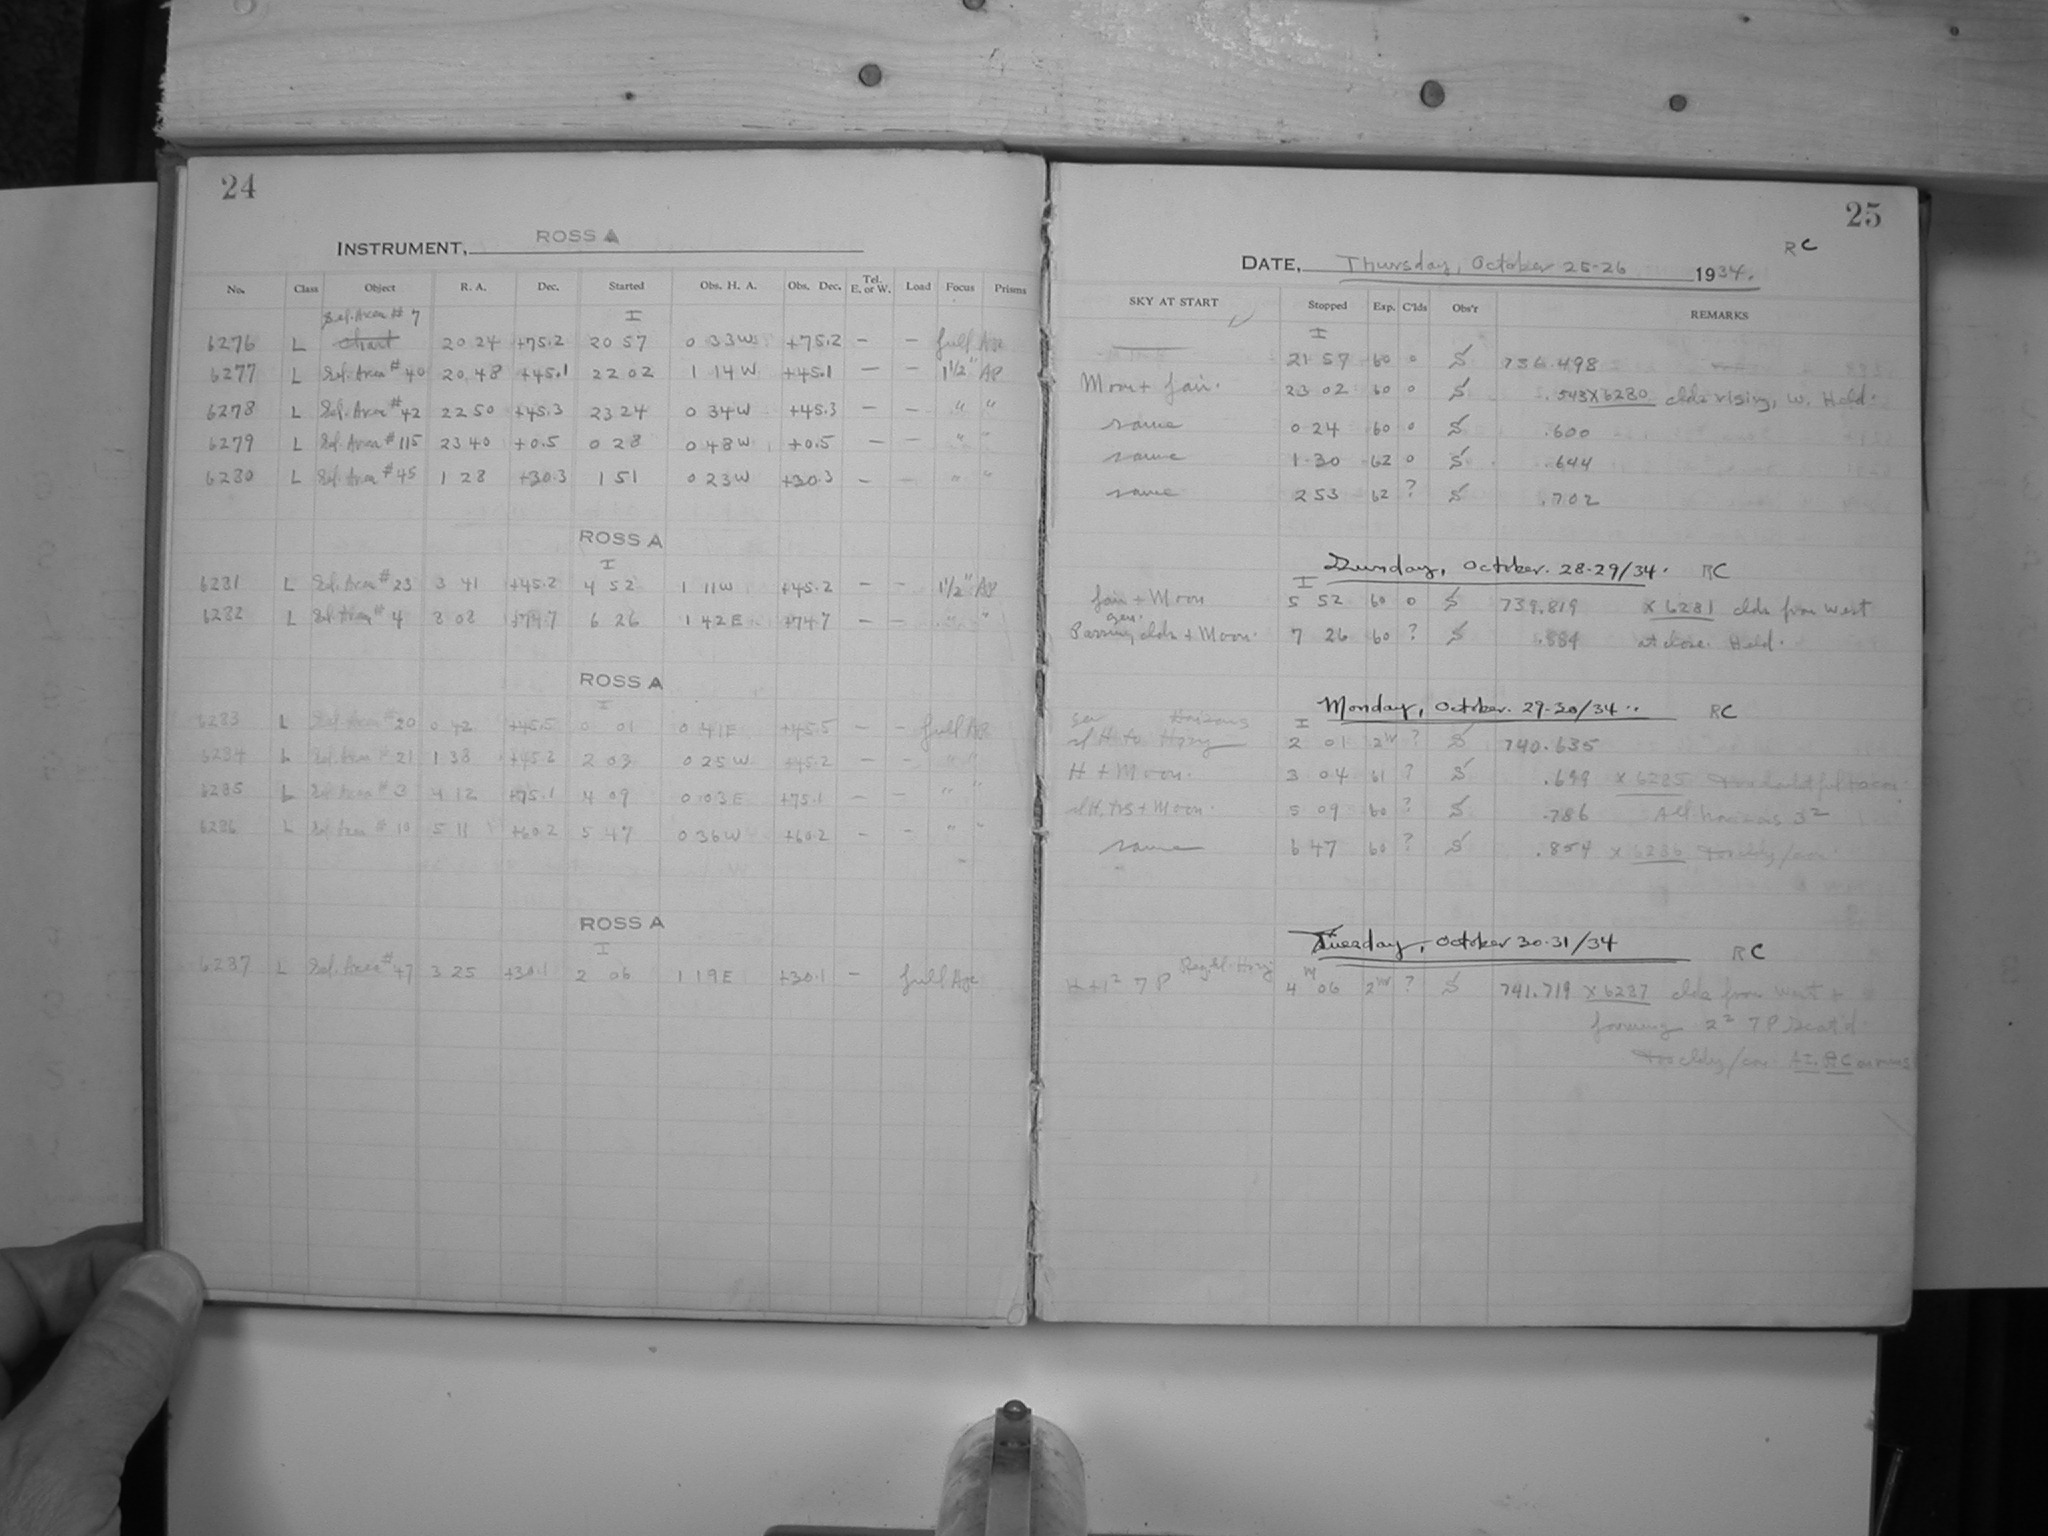 24
INSTRUMENT, ROSS A
No. Class Object R. A. Dec. Started Obs. H. A. Obs. Dec. Tel. E. or W. Load Focus Prisms
Sel. Area # 7 I
6276 L chart 20 24 +75.2 20 57 0 33W +75.2 — — full Ap.
6277 L Sel. Area # 40 20 48 +45.1 22 02 1 14 W +45.1 — — 1½" AP
6278 L Sel. Area # 42 22 50 +45.3 23 24 0 34W +45.3 — — " "
6279 L Sel. Area # 115 23 40 +0.5 0 28 0 48W +0.5 — — " "
6280 L Sel. Area # 45 1 28 +30.3 1 51 0 23W +30.3 — — " "
ROSS A
I
6281 L Sel. Area # 23 3 41 +45.2 4 52 1 11W +45.2 — — 1½" AP
6282 L Sel. Area # 4 8 08 +74.7 6 26 1 42E +74.7 — — " "
ROSS A
I
6283 L Sel. Area # 20 0 42 +45.5 0 01 0 41E +45.5 — — full Ap.
6284 L Sel. Area # 21 1 38 +45.2 2 03 0 25W +45.2 — — " "
6285 L Sel. Area # 3 4 12 +75.1 4 09 0 03E +75.1 — — " "
6286 L Sel. Area # 10 5 11 +60.2 5 47 0 36W +60.2 — — " "
ROSS A
I
6287 L Sel. Area # 47 3 25 +30.1 2 06 1 19E +30.1 — full Ap.
25
RC
DATE, Thursday, October 25-26 1934.
SKY AT START Stopped Exp. C'lds Obs'r REMARKS
I
21 57 60 0 S 736.498
Moon + fair. 23 02 60 0 S .543 X 6280 clds rising, W. Held.
same 0 24 60 0 S .600
same 1 30 62 0 S .644
same 2 53 62 ? S .702
Sunday, October. 28-29/34. RC
I
fair + Moon 5 52 60 0 S 739.819 X 6281 clds from west
Passing clds + Moon. 7 26 60 ? S .884 at close. Held.
Monday, October. 29-30/34. RC
I
2 01 2W ? S 740.635
H + Moon. 3 04 61 ? S .699 X 6285
+ Moon. 5 09 60 ? S .786 All horizons 3²
same 6 47 60 ? S .854 X 6286
Tuesday, October 30-31/34 RC
H+1² 7P 4 06 2W ? S 741.719 X 6287 clds from west +
forming 2² 7P Scat'd